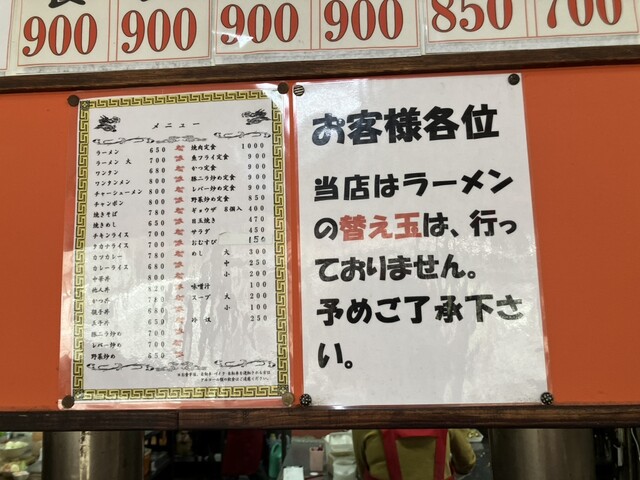 900 900 900 900 850 700
メニュー
ラーメン 650
ラーメン 大 700
ワンタン 680
ワンタンメン 800
チャーシューメン 800
チャンポン 800
焼きそば 780
焼きめし 650
チキンライス 700
タカナライス 700
カツカレー 780
カレーライス 680
中華丼 800
他人丼 820
かつ丼 780
親子丼 780
玉子丼 650
豚ニラ炒め 700
レバー炒め 700
野菜炒め 650
焼肉定食 1000
魚フライ定食 900
かつ定食 900
豚ニラ炒め定食 900
レバー炒め定食 900
野菜炒め定食 850
ギョウザ 8個入 400
目玉焼き 470
サラダ 450
おむすび 150
めし 大 300
中 250
小 200
味噌汁 100
スープ 大 200
小 100
250
お客様各位
当店はラーメン
の替え玉は、行っ
ておりません。
予めご了承下さ
い。